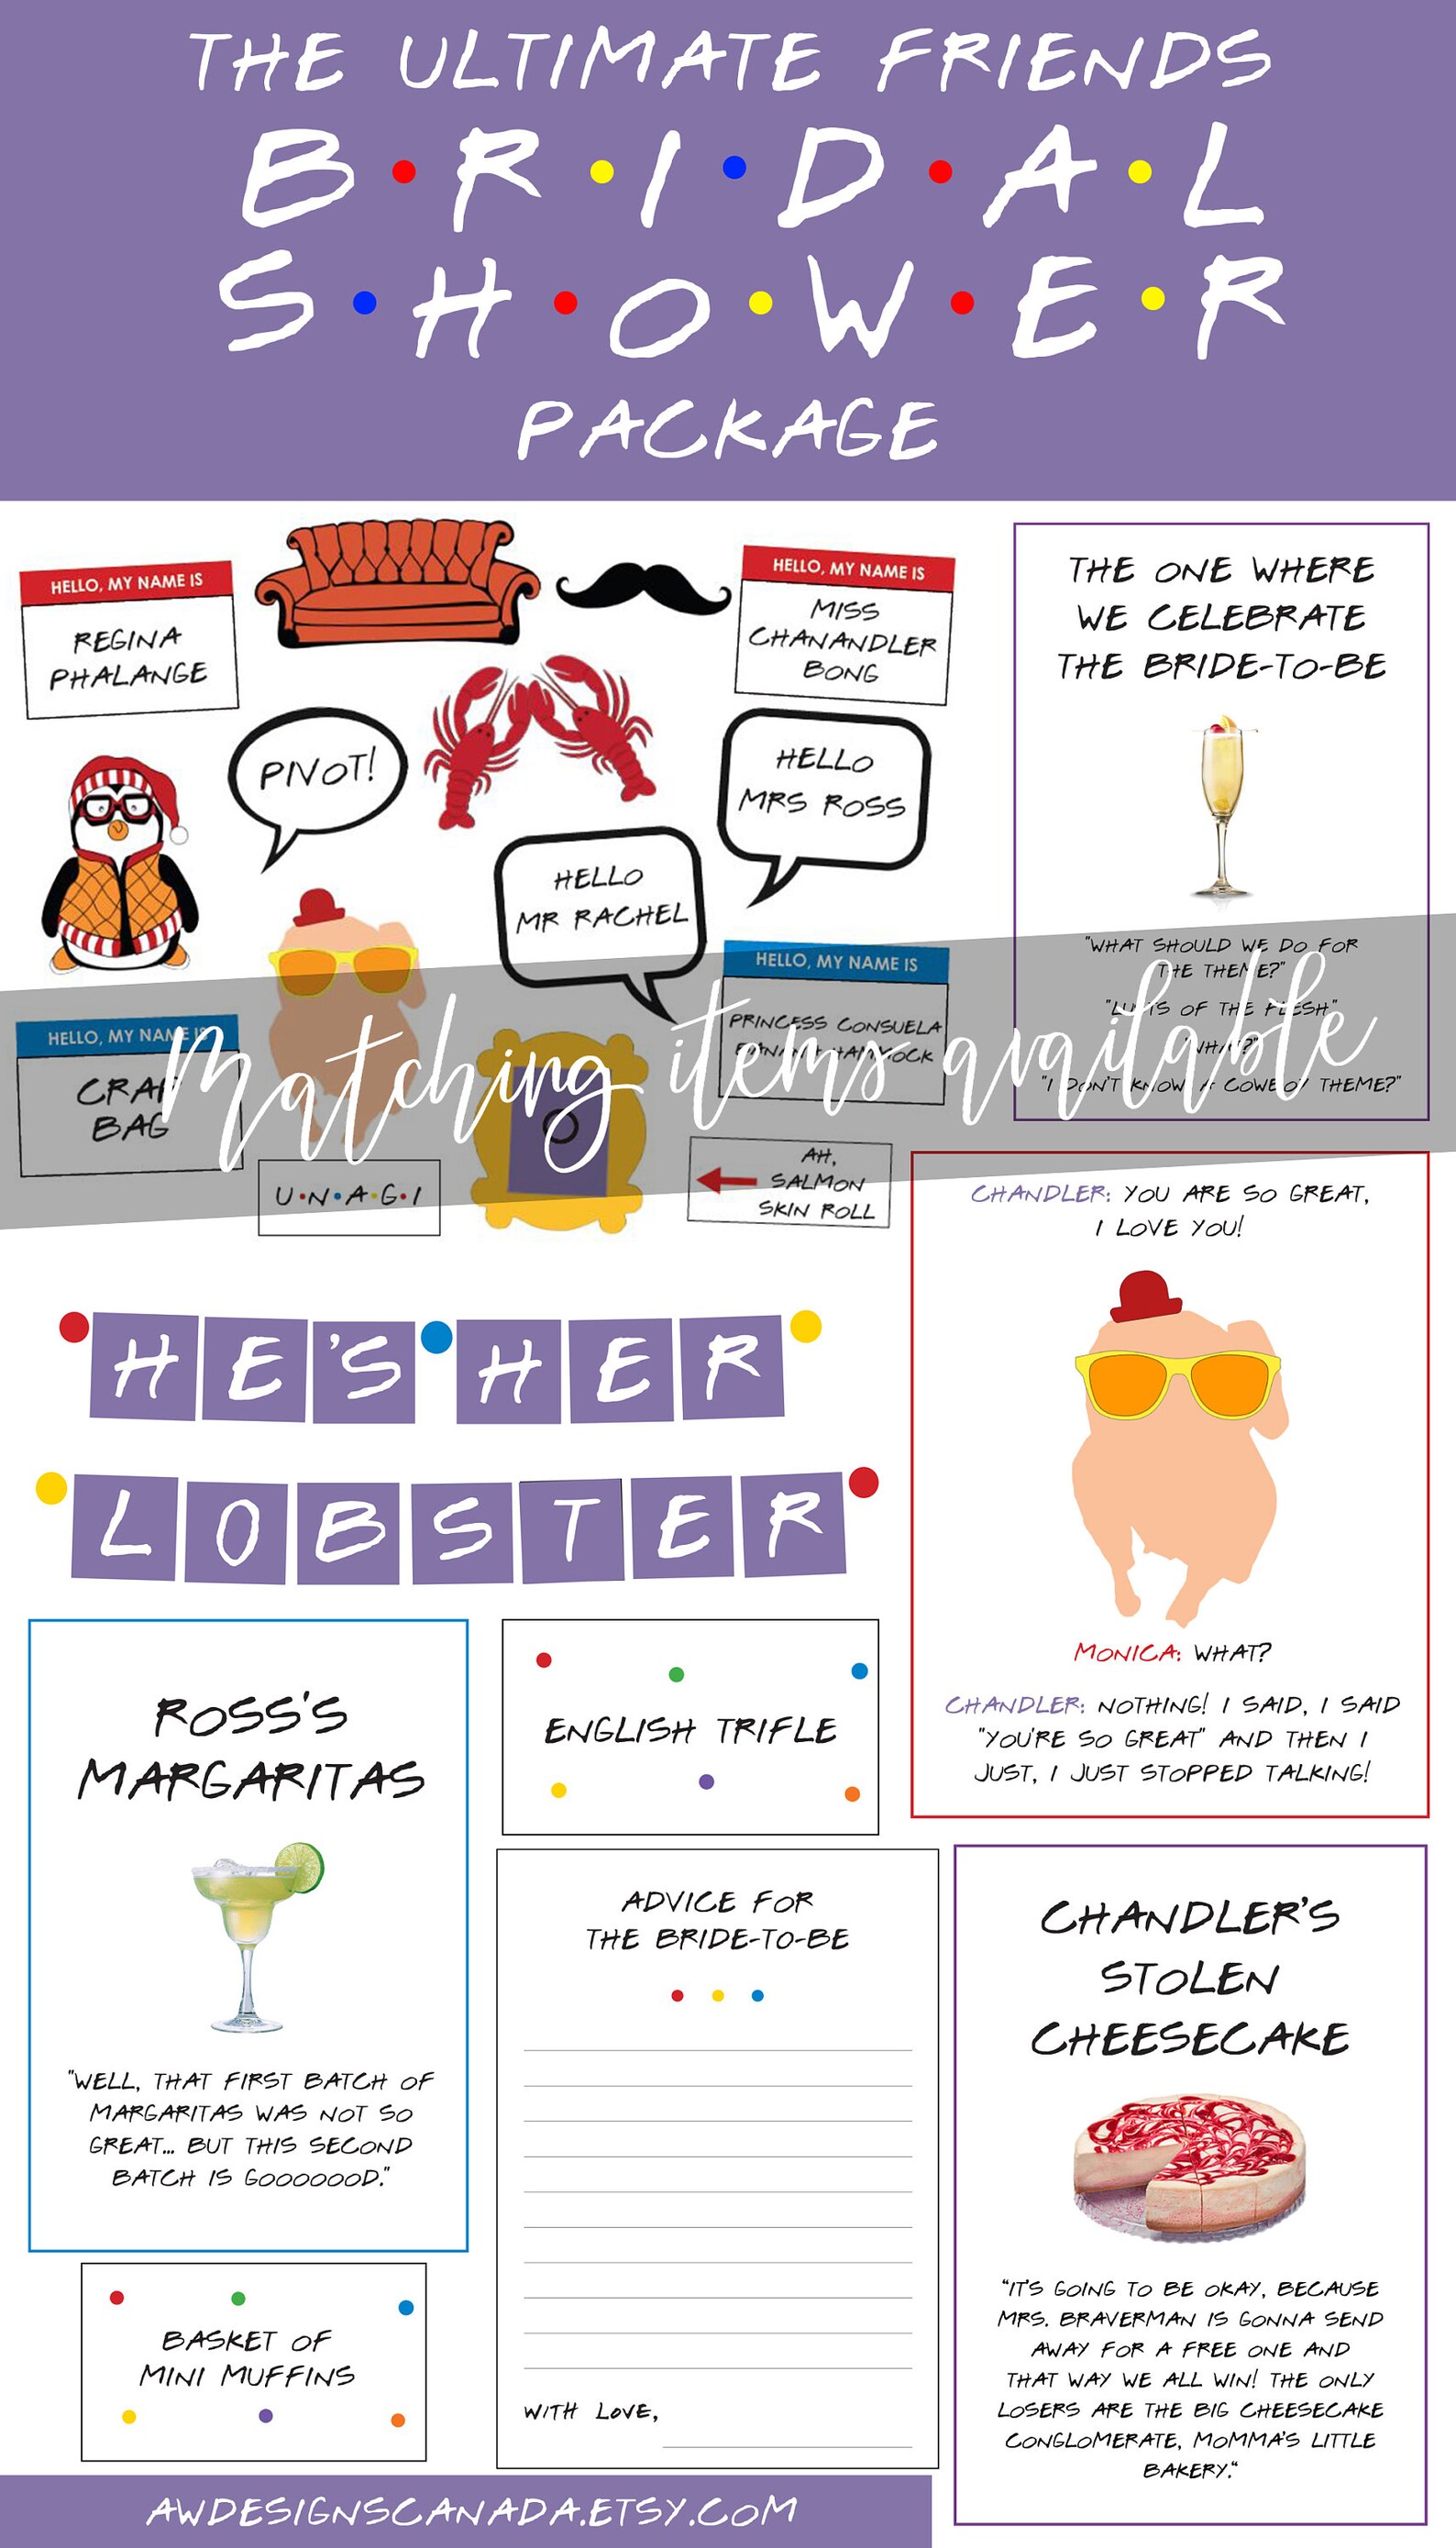 THE ULTIMATE FRIENDS
B•R•I•D•A•L
S•H•O•W•E•R
PACKAGE
HELLO, MY NAME IS
REGINA
PHALANGE
HELLO, MY NAME IS
MISS
CHANANDLER
BONG
PIVOT!
HELLO
MRS ROSS
HELLO
MR RACHEL
HELLO, MY NAME IS
CRAP
BAG
HELLO, MY NAME IS
PRINCESS CONSUELA
BANANA HAMMOCK
U•N•A•G•I
AH,
SALMON
SKIN ROLL
THE ONE WHERE
WE CELEBRATE
THE BRIDE-TO-BE
"WHAT SHOULD WE DO FOR
THE THEME?"
"LUSTS OF THE FLESH"
"WHAT?"
"I DON'T KNOW, A COWBOY THEME?"
Matching items available
CHANDLER: YOU ARE SO GREAT,
I LOVE YOU!
MONICA: WHAT?
CHANDLER: NOTHING! I SAID, I SAID
"YOU'RE SO GREAT" AND THEN I
JUST, I JUST STOPPED TALKING!
HE'S•HER
LOBSTER
ROSS'S
MARGARITAS
"WELL, THAT FIRST BATCH OF
MARGARITAS WAS NOT SO
GREAT... BUT THIS SECOND
BATCH IS GOOOOOOD."
ENGLISH TRIFLE
ADVICE FOR
THE BRIDE-TO-BE
WITH LOVE,
CHANDLER'S
STOLEN
CHEESECAKE
"IT'S GOING TO BE OKAY, BECAUSE
MRS. BRAVERMAN IS GONNA SEND
AWAY FOR A FREE ONE AND
THAT WAY WE ALL WIN! THE ONLY
LOSERS ARE THE BIG CHEESECAKE
CONGLOMERATE, MOMMA'S LITTLE
BAKERY."
BASKET OF
MINI MUFFINS
AWDESIGNSCANADA.ETSY.COM